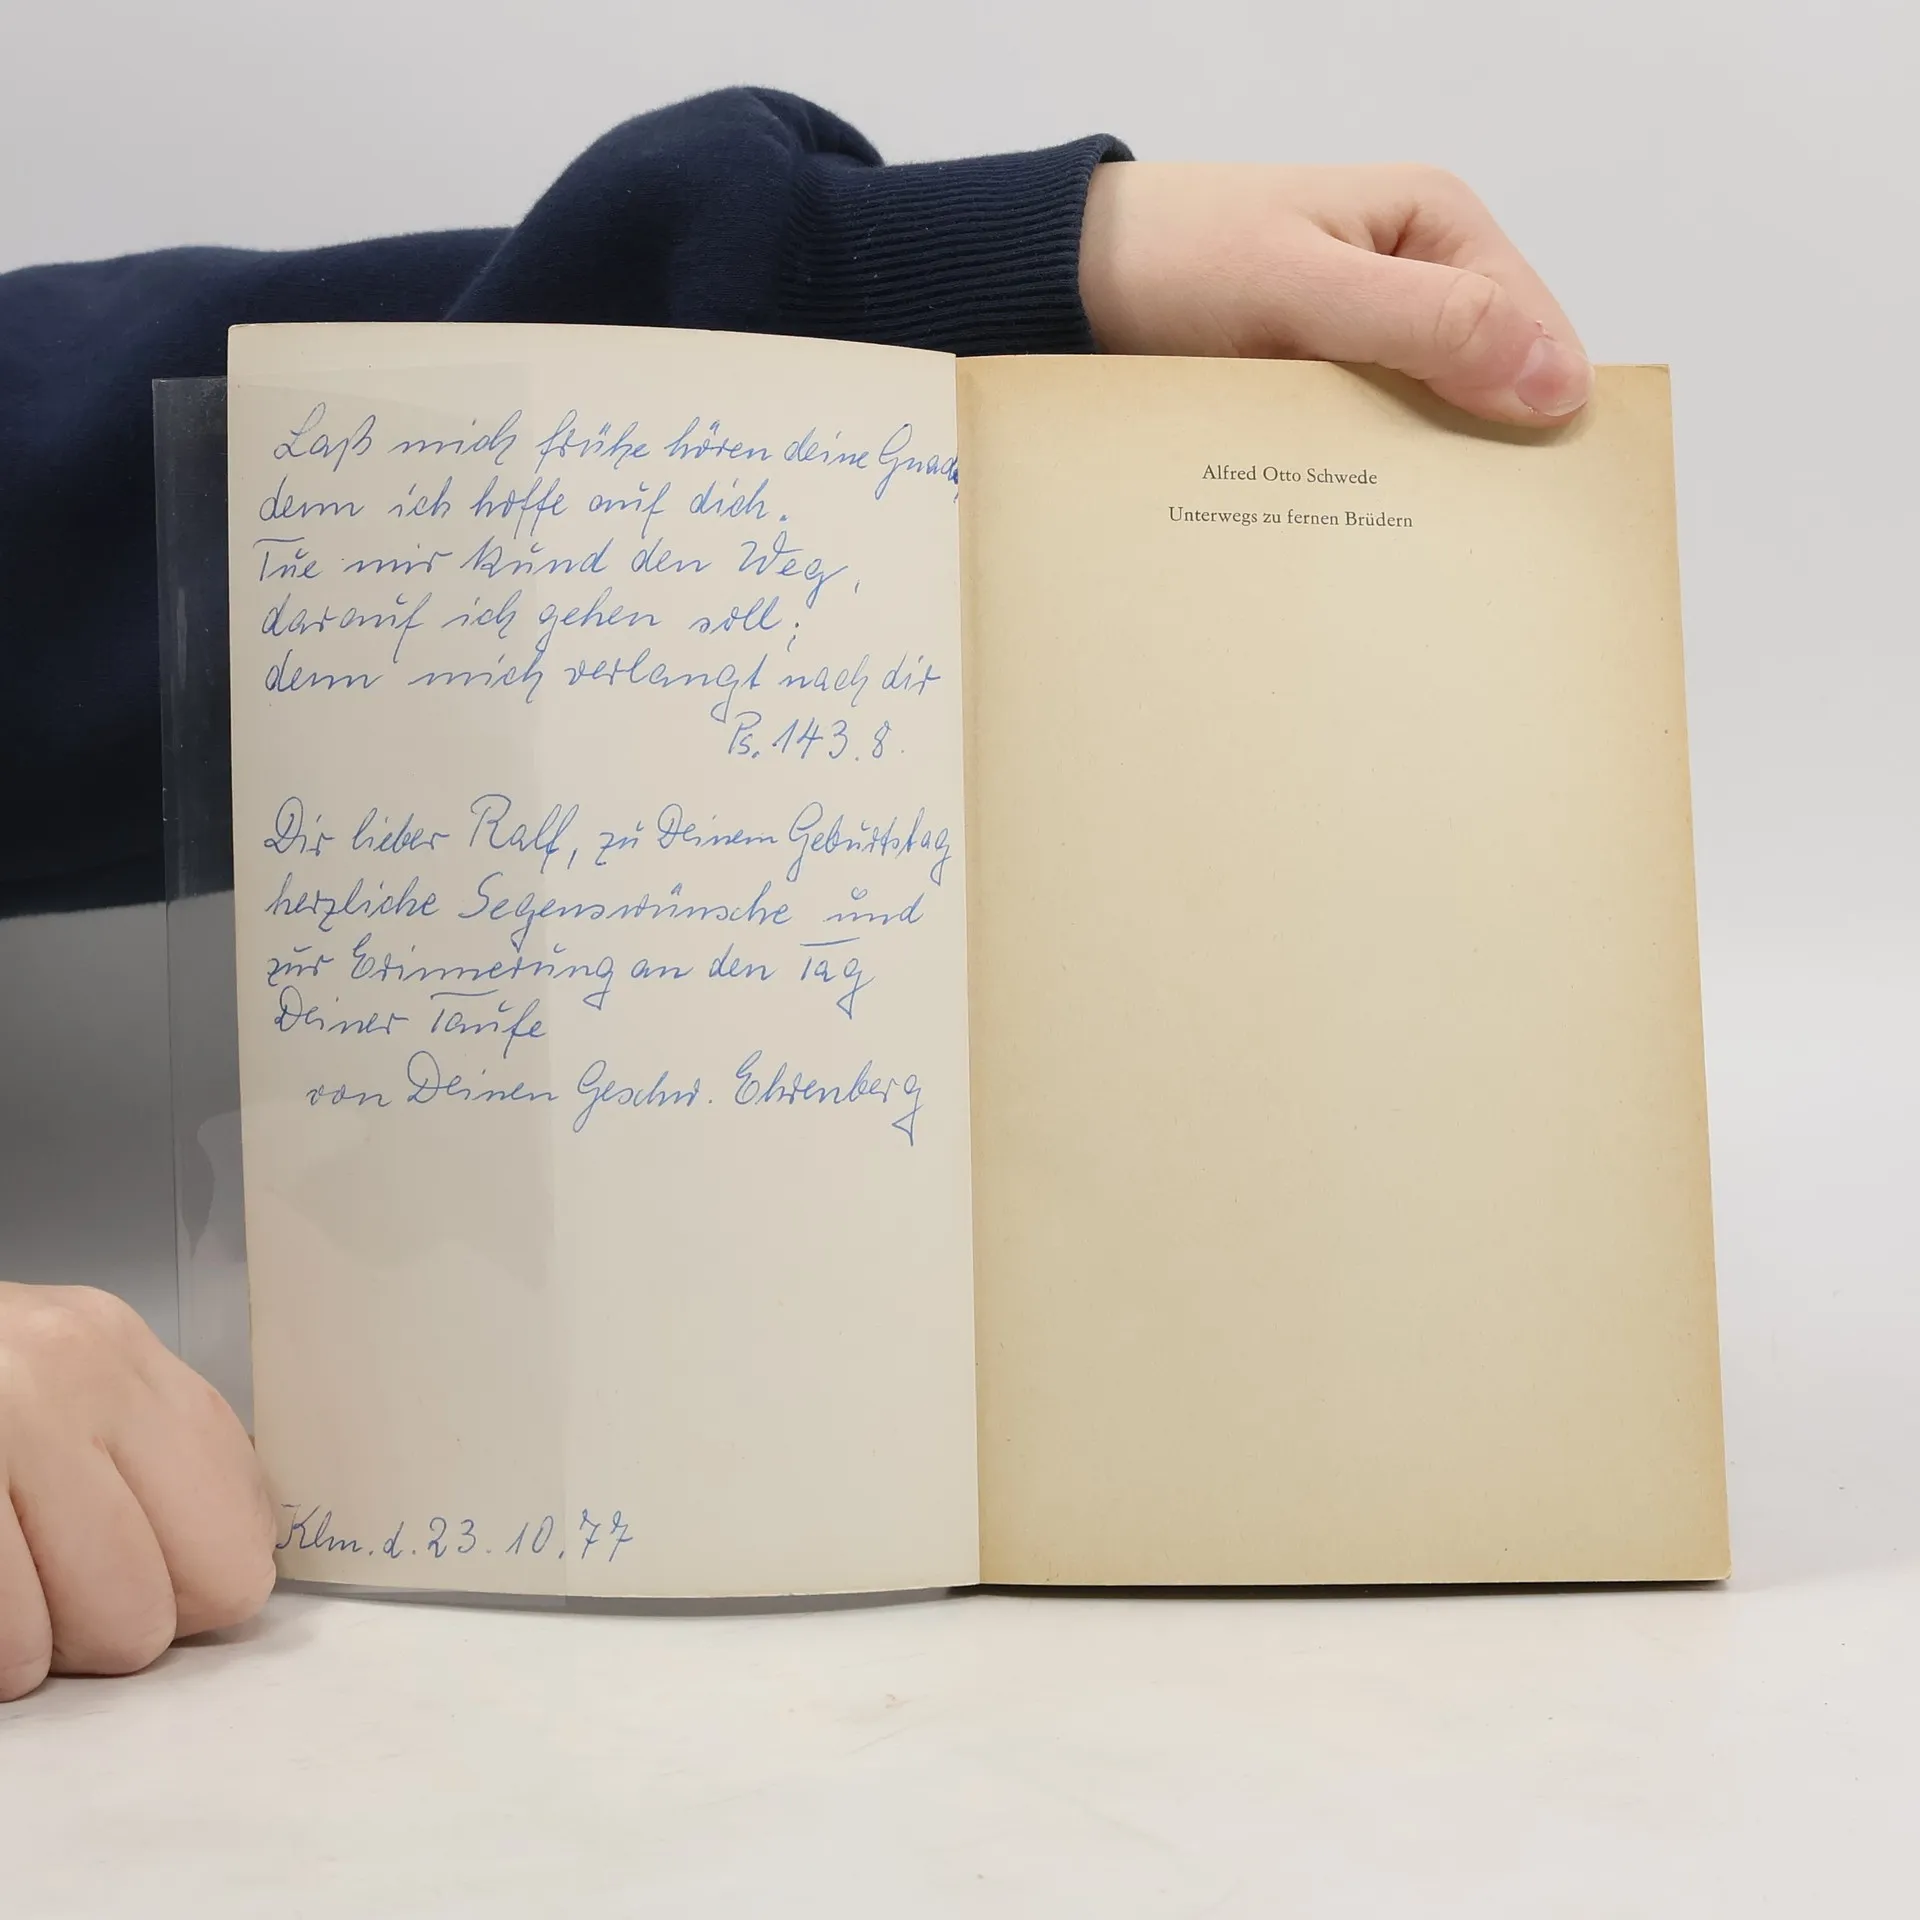 Laß mich frühe hören deine Gnade,
denn ich hoffe auf dich.
Tue mir kund den Weg,
darauf ich gehen soll;
denn mich verlangt nach dir
Ps. 143.8.
Dir lieber Ralf, zu Deinem Geburtstag
herzliche Segenswünsche und
zur Erinnerung an den Tag
Deiner Taufe
von Deinen Geschw. Ehrenberg
Klm. d. 23.10.77
Alfred Otto Schwede
Unterwegs zu fernen Brüdern